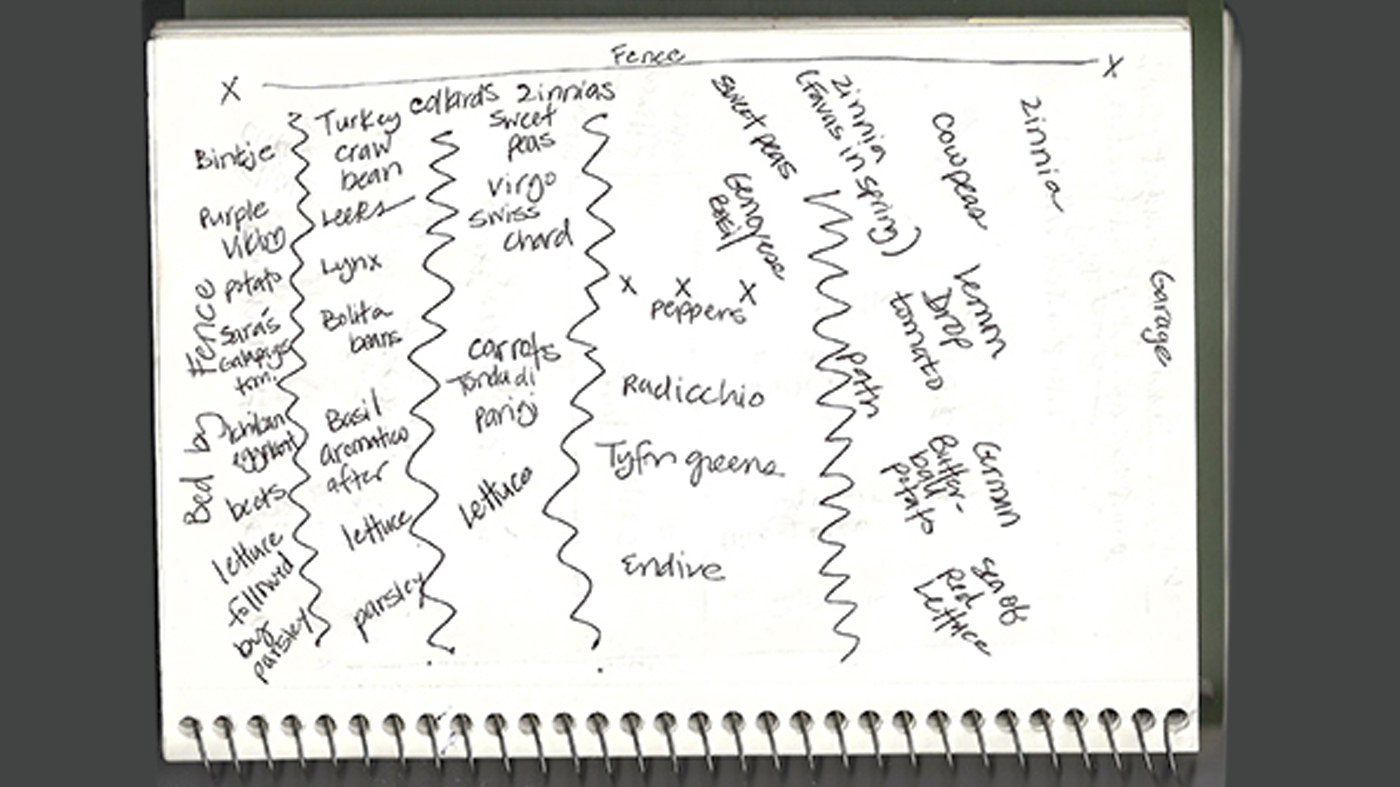 Fence
X
X
Bintje
Purple
Viking
potato
Sara's
Galapagos
tom.
Ichiban
eggplant
beets
lettuce
followed
by
parsley
Bed by
Fence
Turkey
craw
bean
Leeks
Lynx
Bolita
beans
Basil
aromatico
after
lettuce
parsley
collards zinnias
sweet
peas
virgo
swiss
chard
carrots
Tonda di
parigi
lettuce
sweet peas
Genovese
Basil
X X X
peppers
Radicchio
Tyfon greens
Endive
zinnia
(favas in spring)
path
cowpeas
zinnia
lemon
Drop
tomato
German
Butter-
ball
potato
sea of
Red
Lettuce
Garage